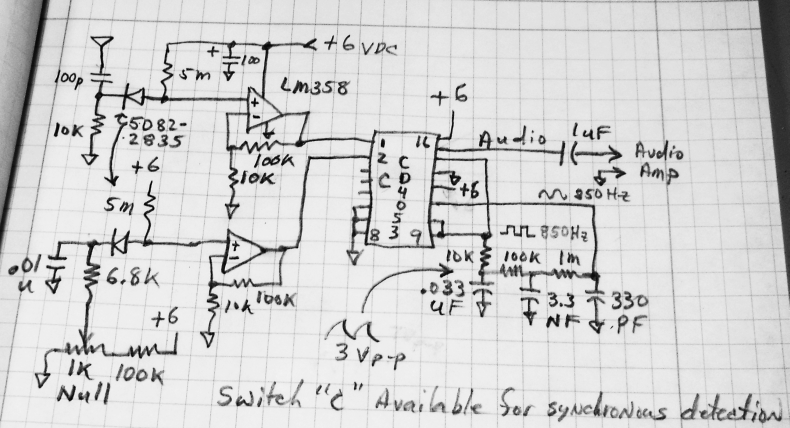 +6 VDC
+ 100
100p
5m
LM358
+
-
10K
5082-
2835
+6
100K
10K
+6
1
2
16
Audio
1uF
Audio
Amp
C
D
4
0
5
3
C
8
9
+6
850Hz
850Hz
5m
+
-
.01
u
6.8K
10K
100K
10K
100K
1m
.033
uF
3.3
NF
330
PF
+6
1K
100K
Null
3 Vp-p
Switch "C" Available for synchronous detection